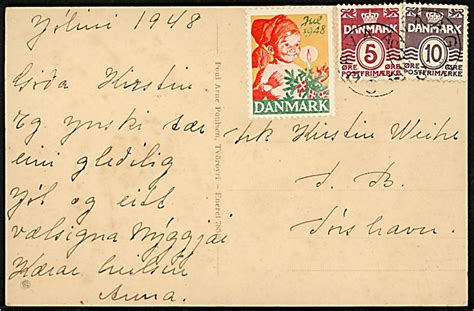 Jólini 1948
Góða Kirstin
Eg ynski tær
eini gleðilig
Jól og eitt
vælsigna Nýggjár
Kærar heilsur
Anna.
Poul Arne Poulsen, Tvöroyri - Eneret
Jul
1948
DANMARK
DANMARK
5
ØRE ØRE
POSTFRIMÆRKE
DANMARK
10
ØRE ØRE
POSTFRIMÆRKE
frk Kirstin Weihe
J. B.
Tórshavn.